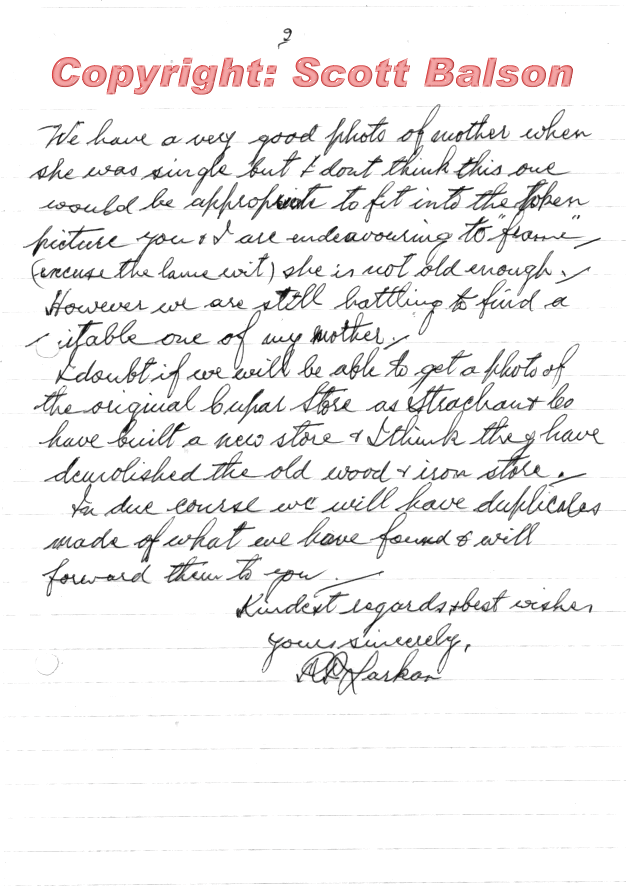 2
Copyright: Scott Balson
We have a very good photo of mother when
she was single but I dont think this one
would be appropriate to fit into the token
picture you & I are endeavouring to "frame"
(excuse the lame wit) she is not old enough.
However we are still battling to find a
itable one of my mother.
I doubt if we will be able to get a photo of
the original Cupar Store as Strachan & Co
have built a new store & I think they have
demolished the old wood & iron store.
In due course we will have duplicates
made of what we have found & will
forward them to you.
Kindest regards & best wishes
yours sincerely,
Larkan